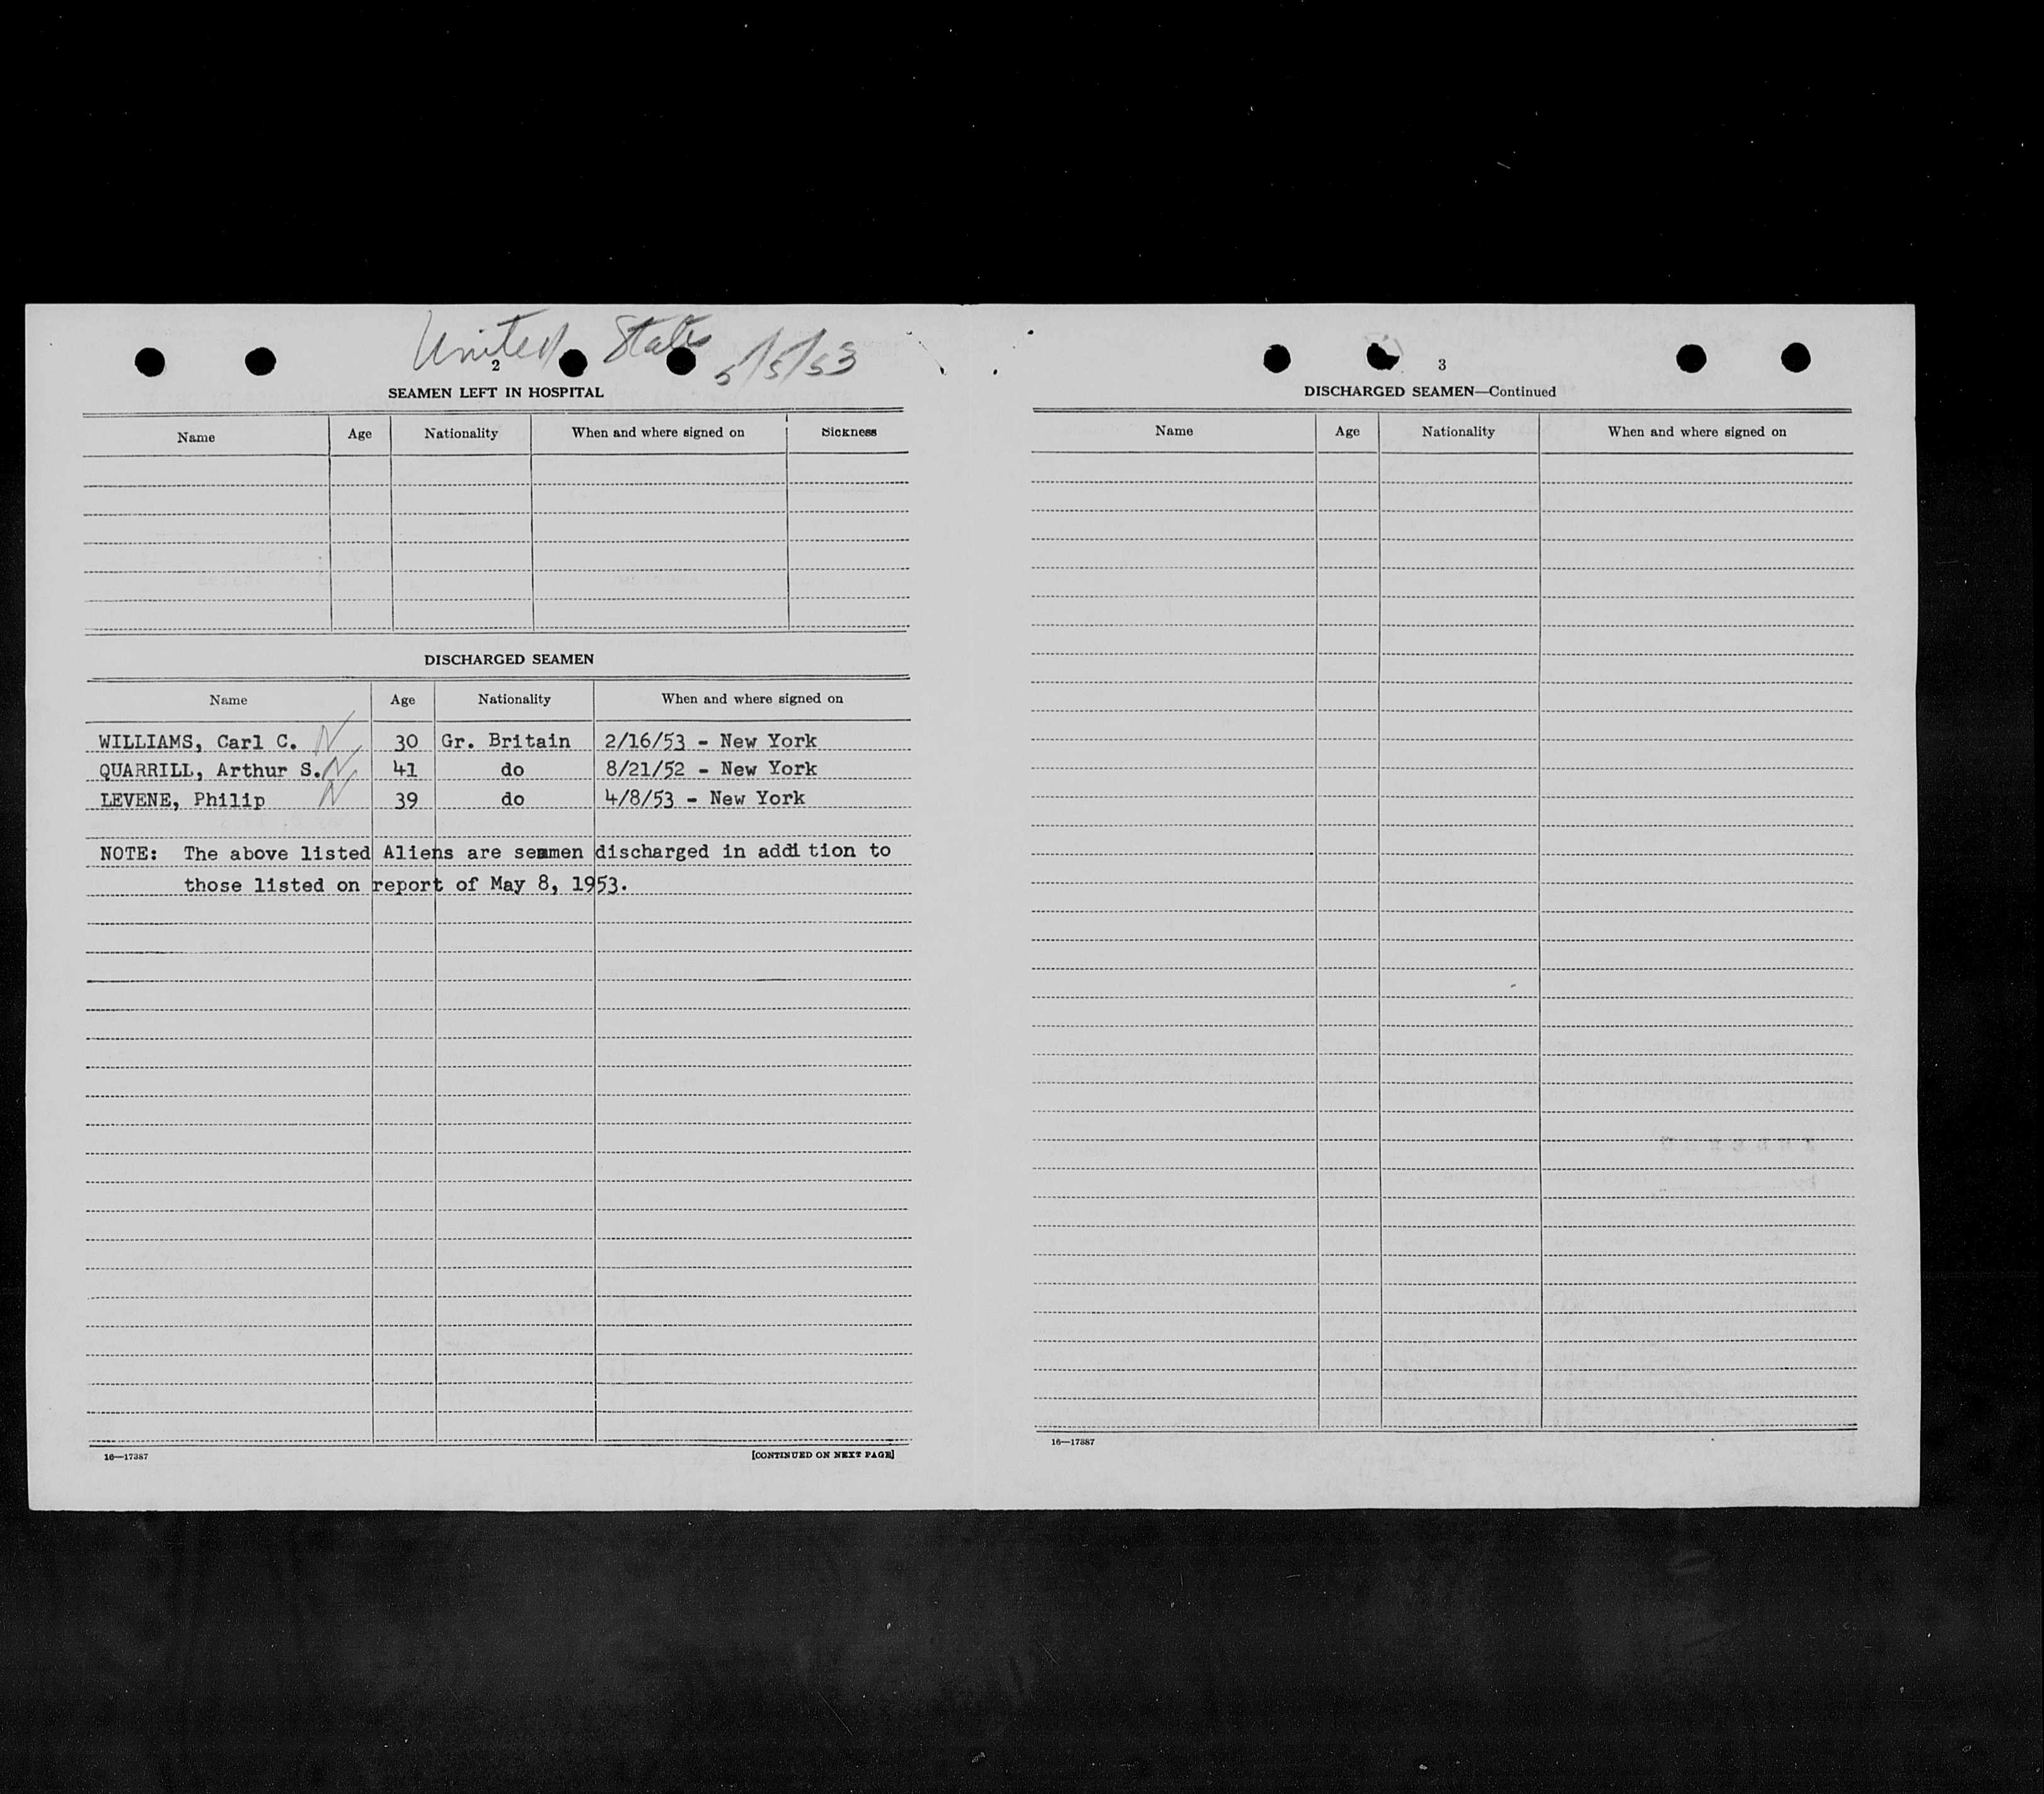 United States 5/5/53
2
SEAMEN LEFT IN HOSPITAL
Name Age Nationality When and where signed on Sickness
DISCHARGED SEAMEN
Name Age Nationality When and where signed on
WILLIAMS, Carl C. N 30 Gr. Britain 2/16/53 - New York
QUARRILL, Arthur S. N 41 do 8/21/52 - New York
LEVENE, Philip N 39 do 4/8/53 - New York
NOTE: The above listed Aliens are seamen discharged in addi tion to
those listed on report of May 8, 1953.
16—17387 [CONTINUED ON NEXT PAGE]
3
DISCHARGED SEAMEN—Continued
Name Age Nationality When and where signed on
16—17387